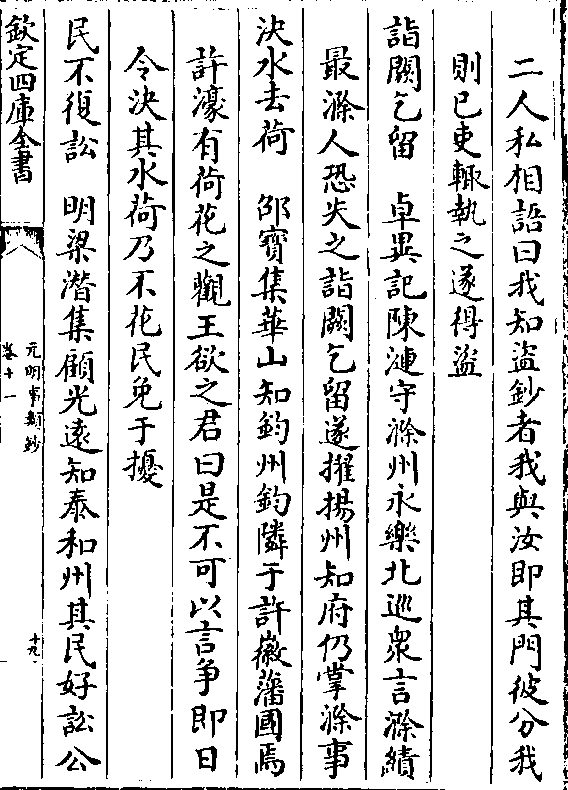 二人私相語曰我知盜鈔者我與汝即其門彼分我
則已吏輙執之遂得盜
詣闕乞留　卓異記陳漣守滁州永樂北巡衆言滁績
最滁人恐失之詣闕乞留遂擢揚州知府仍掌滁事
決水去荷　邵寶集華山知鈞州鈞隣于許徽藩國焉
許濠有荷花之觀王欲之君曰是不可以言争即日
令決其水荷乃不花民免于擾
民不復訟　明梁潛集顧光逺知泰和州其民好訟公
欽定四庫全書
元明事類鈔
卷十一
十九